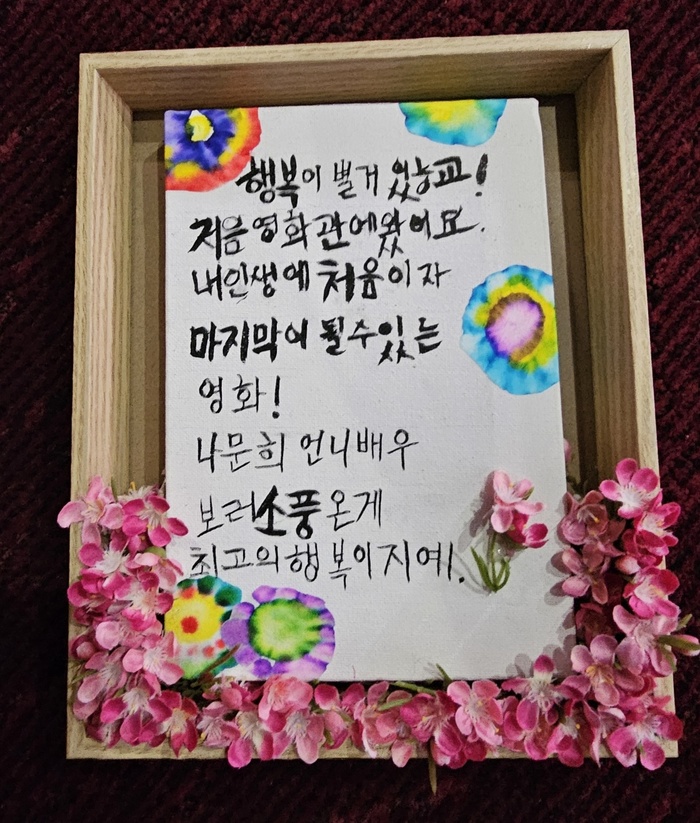 행복이 별거 있능교!
처음영화관에왔어요.
내인생에 처음이자
마지막이 될수있는
영화!
나문희 언니배우
보러소풍온게
최고의행복이지예!.